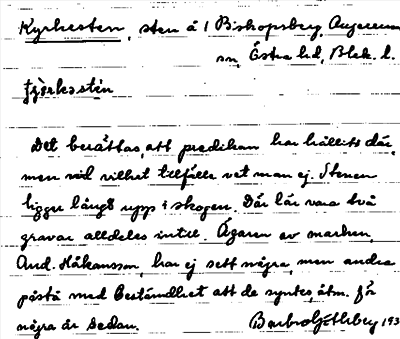 Kyrkesten, sten å 1 Biskopsberg, Augerums
sn, Östra hd, Blek. l.
Det berättas, att predikan har hållits där,
men vid vilket tillfälle vet man ej. Stenen
ligger långt upp i skogen. Där lär vara två
gravar alldeles intill. Ägaren av marken,
And. Håkansson, har ej sett några, men andra
påstå med bestämdhet att de syntes, åtm. för
några år sedan.